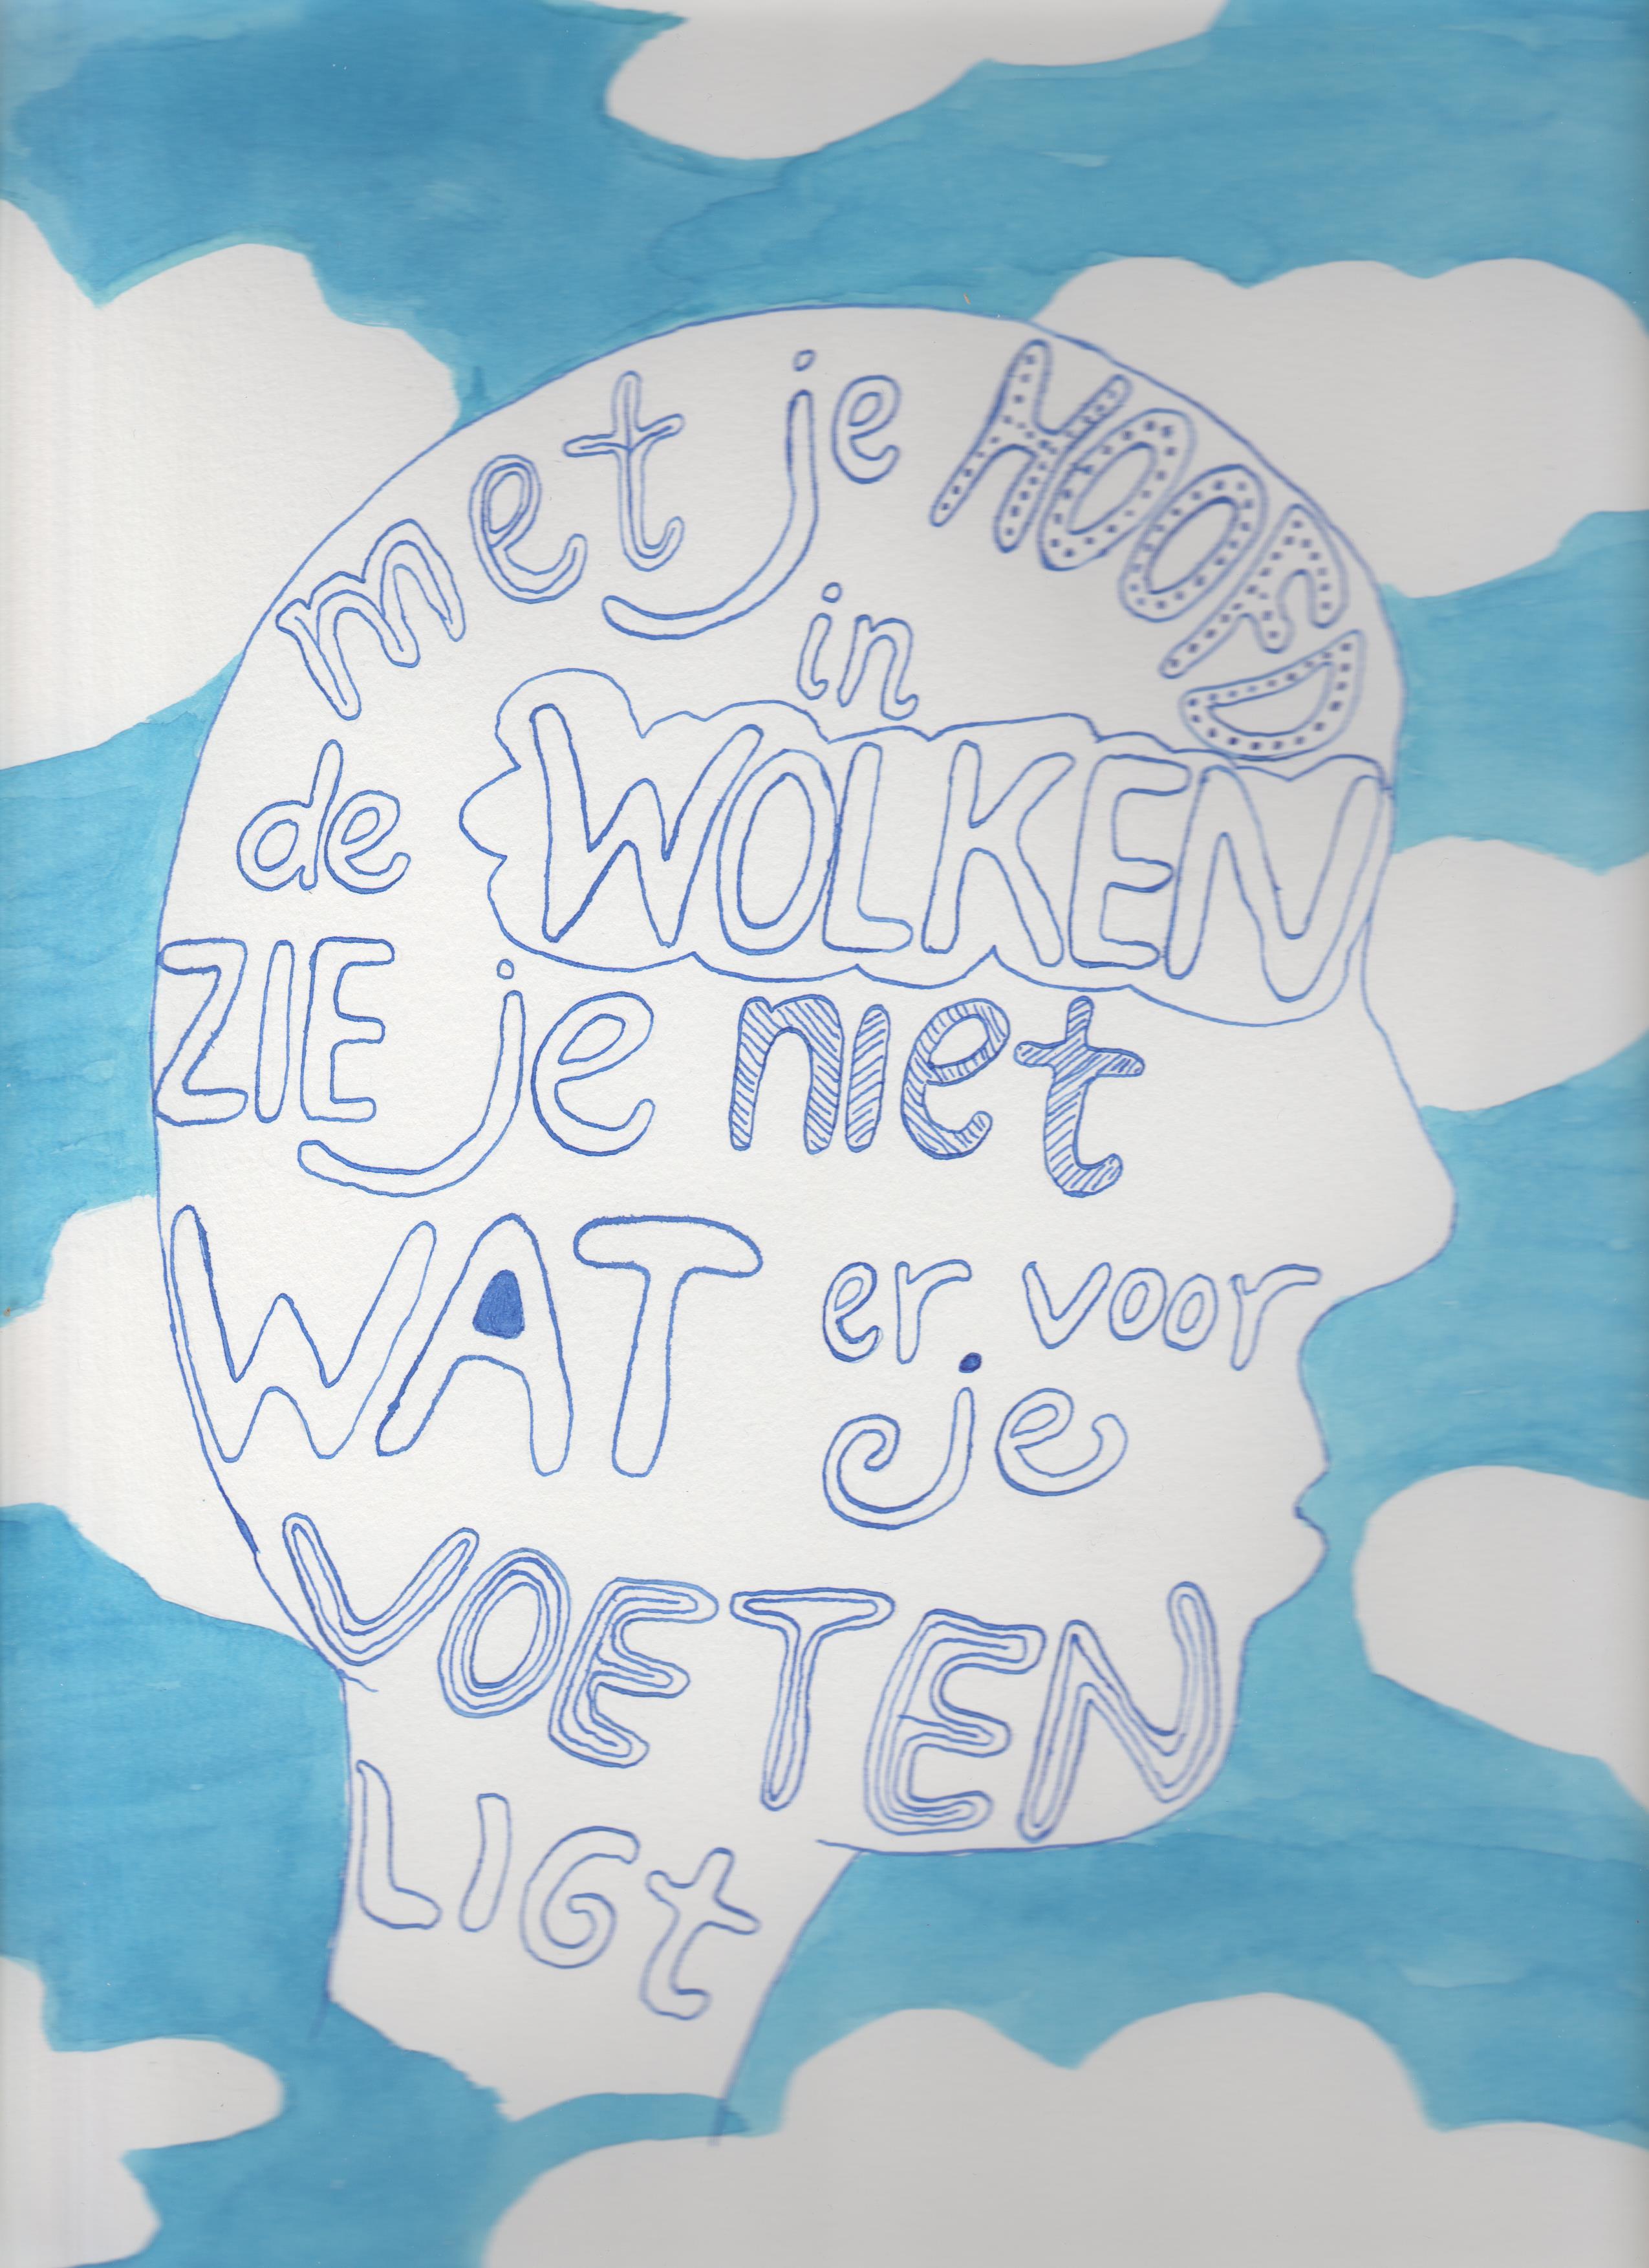 met je HOOFD
in
de WOLKEN
ZIE je niet
WAT er voor
je
VOETEN
LIGt